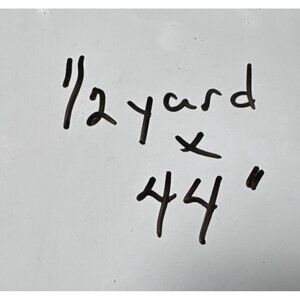 1/2 yard
x
44"